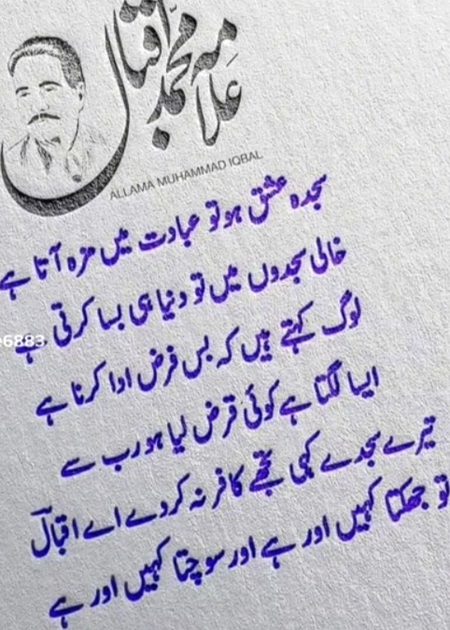 علامہ محمد اقبال
ALLAMA MUHAMMAD IQBAL
سجدہ عشق ہو تو عبادت میں مزہ آتا ہے
خالی سجدوں میں تو دنیا ہی بسا کرتی ہے
6883
لوگ کہتے ہیں کہ بس فرض ادا کرنا ہے
ایسا لگتا ہے کوئی قرض لیا ہو رب سے
تیرے سجدے کہی تجھے کافر نہ کر دے اے اقبالؔ
تو جھکتا کہیں اور ہے اور سوچتا کہیں اور ہے